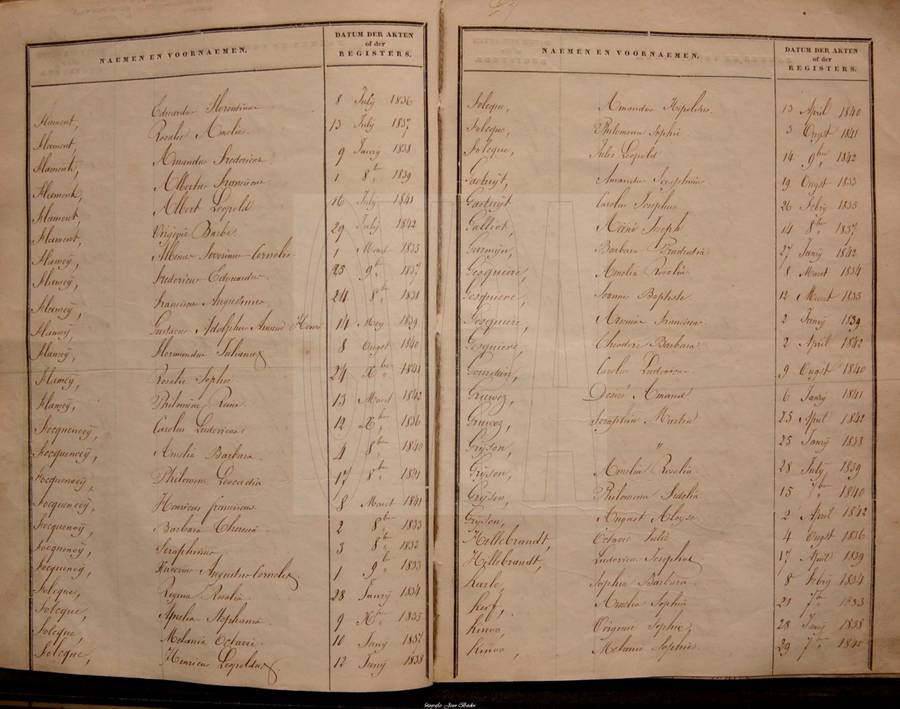 NAEMEN EN VOORNAEMEN.
DATUM DER AKTEN
of der
REGISTERS.
Flament, Eduardus Florentinus 8 July 1836
Flament, Rosalie Amelie 13 July 1837
Flament, Amandus Fredericus 9 Janry 1838
Flament, Albertus Franciscus 1 8bre 1839
Flament, Albert Leopold 16 July 1841
Flament, Virginie Barbe 29 July 1842
Flameÿ, Severinus Cornelis 1 Maart 1835
Flameÿ, Fredericus Edouardus 25 9bre 1837
Flameÿ, Franciscus Augustinus 24 8bre 1838
Flameÿ, Gustavus Adolphus Amand Henri 14 Mey 1839
Flameÿ, Hermandus Julianus 8 Ougst 1840
Flameÿ, Rosalie Sophie 24 Xbre 1841
Flameÿ, Philomene 13 Maart 1842
Focquenoeÿ, Carolus Ludovicus 12 Xbre 1836
Focquenoeÿ, Amelia Barbara 4 8bre 1840
Focquenoeÿ, Philomena Leocadia 17 8bre 1841
Focquenoeÿ, Henricus franciscus 8 Maart 1841
Focquenoeÿ, Barbara Theresia 2 8bre 1833
Focquenoeÿ, Seraphinus 3 8bre 1832
Focquenoeÿ, Augustus Cornelis 1 9bre 1833
Folcque, Regina Rosalia 28 Janry 1834
Folcque, Amelia Stephania 9 Xbre 1835
Folcque, Melania Octavie 10 Janry 1837
Folcque, Henricus Leopoldus 12 Janry 1838
NAEMEN EN VOORNAEMEN.
DATUM DER AKTEN
of der
REGISTERS.
Folcque, Amandus Hypolitus 13 April 1840
Folcque, Philomena Sophie 3 Ougst 1841
Folcque, Jules Leopold 14 9bre 1842
Amandus Josephus 19 Ougst 1833
Carolus Josephus 26 Febry 1835
Galliot, Joseph 14 8bre 1837
Germÿn, Barbara Prudentia 27 Janry 1842
Gesquiere, Amelia Rosalia 8 Maart 1834
Gesquiere, Joannes Baptiste 12 Maart 1835
Gesquiere, Francisca 2 Janry 1839
Gesquiere, Theodore Barbara 2 April 1842
Carolus Ludovicus 9 Ougst 1840
Desiré Amand 6 Janry 1841
Seraphin Martin 25 April 1842
Grÿson, " 25 Janry 1838
Grÿson, Amelia Rosalia 28 July 1839
Grÿson, Philomena Fidelia 15 7bre 1840
Grÿson, August Aloyse 2 April 1842
Hillebrandt, Octavie Julie 4 Ougst 1836
Hillebrandt, Ludovicus Josephus 17 April 1839
Karle, Sophia Barbara 8 Febry 1834
Kerf, Amelia Sophia 21 7bre 1833
Kinoo, Sophie 28 Janry 1838
Kinoo, Melanie Sophie 29 7bre